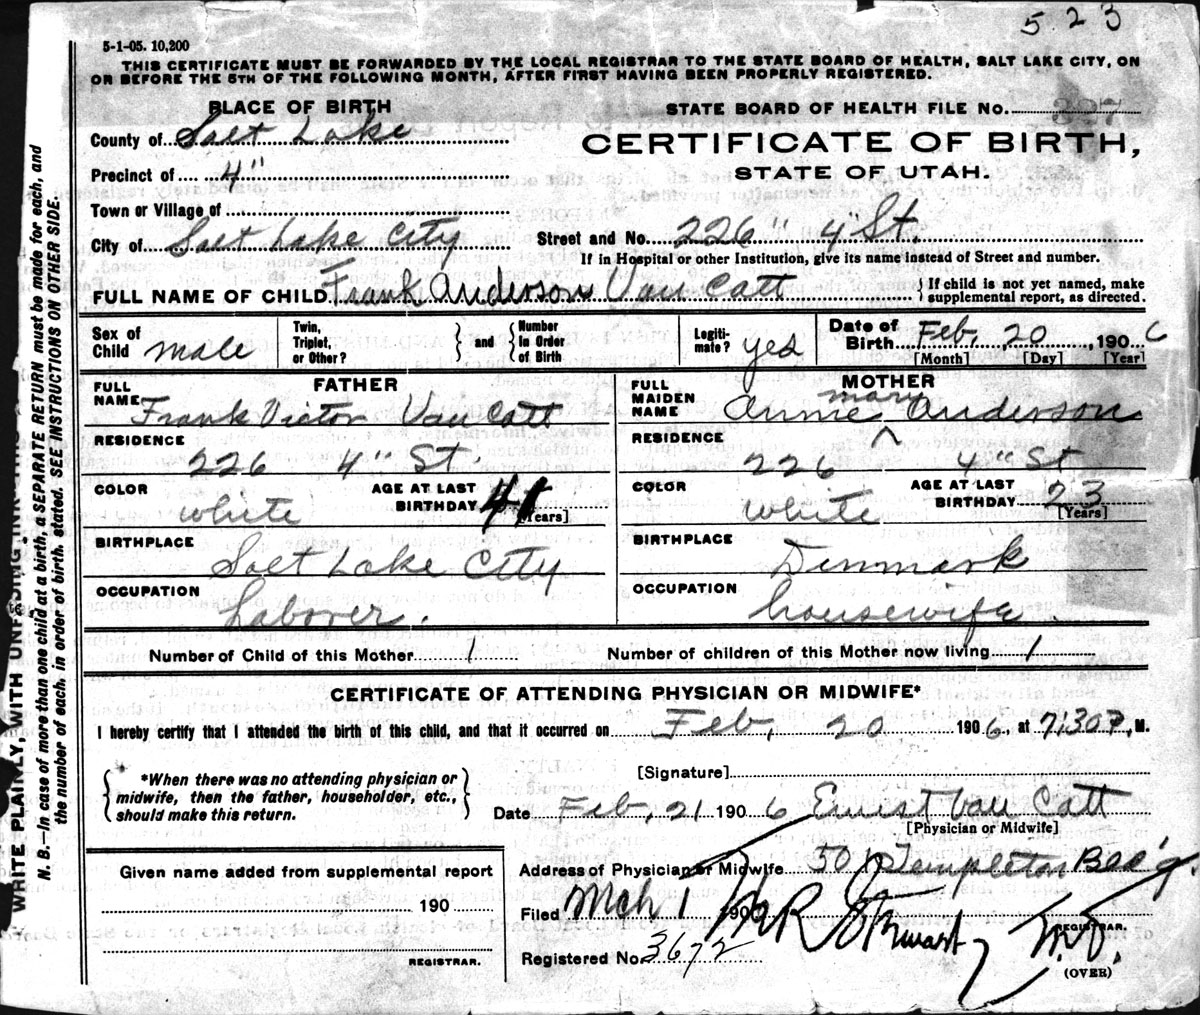 5 2 3
5-1-05. 10,200
THIS CERTIFICATE MUST BE FORWARDED BY THE LOCAL REGISTRAR TO THE STATE BOARD OF HEALTH, SALT LAKE CITY, ON
OR BEFORE THE 5TH OF THE FOLLOWING MONTH, AFTER FIRST HAVING BEEN PROPERLY REGISTERED.
PLACE OF BIRTH
County of Salt Lake
Precinct of 4"
Town or Village of
City of Salt Lake City
STATE BOARD OF HEALTH FILE No. 397
CERTIFICATE OF BIRTH,
STATE OF UTAH.
Street and No. 226" 4" St.
If in Hospital or other Institution, give its name instead of Street and number.
FULL NAME OF CHILD Frank Anderson Van Catt } If child is not yet named, make supplemental report, as directed.
Sex of Child male
Twin, Triplet, or Other? } and { Number in Order of Birth
Legiti-mate? yes
Date of Birth Feb, 20, 1906
[Month] [Day] [Year]
FATHER
FULL NAME Frank Victor Van Catt
RESIDENCE 226 4" St.
COLOR white
AGE AT LAST BIRTHDAY 41 [Years]
BIRTHPLACE Salt Lake City
OCCUPATION Laborer.
MOTHER
FULL MAIDEN NAME Annie Mary Anderson
RESIDENCE 226 4" St
COLOR white
AGE AT LAST BIRTHDAY 23 [Years]
BIRTHPLACE Denmark
OCCUPATION housewife.
Number of Child of this Mother 1 Number of children of this Mother now living 1
CERTIFICATE OF ATTENDING PHYSICIAN OR MIDWIFE*
I hereby certify that I attended the birth of this child, and that it occurred on Feb, 20 1906, at 7:30 P. M.
{ *When there was no attending physician or midwife, then the father, householder, etc., should make this return. }
[Signature]
Date Feb, 21 1906 Ernest Van Catt
[Physician or Midwife]
Address of Physician or Midwife 501 Templeton Bld'g.
Filed Mch 1 190 Stewart M.D.
REGISTRAR.
Registered No. 3672
(OVER)
Given name added from supplemental report
190
REGISTRAR.
WRITE PLAINLY, WITH UNFADING INK—THIS
N. B.—In case of more than one child at a birth, a SEPARATE RETURN must be made for each, and
the number of each, in order of birth, stated. SEE INSTRUCTIONS ON OTHER SIDE.